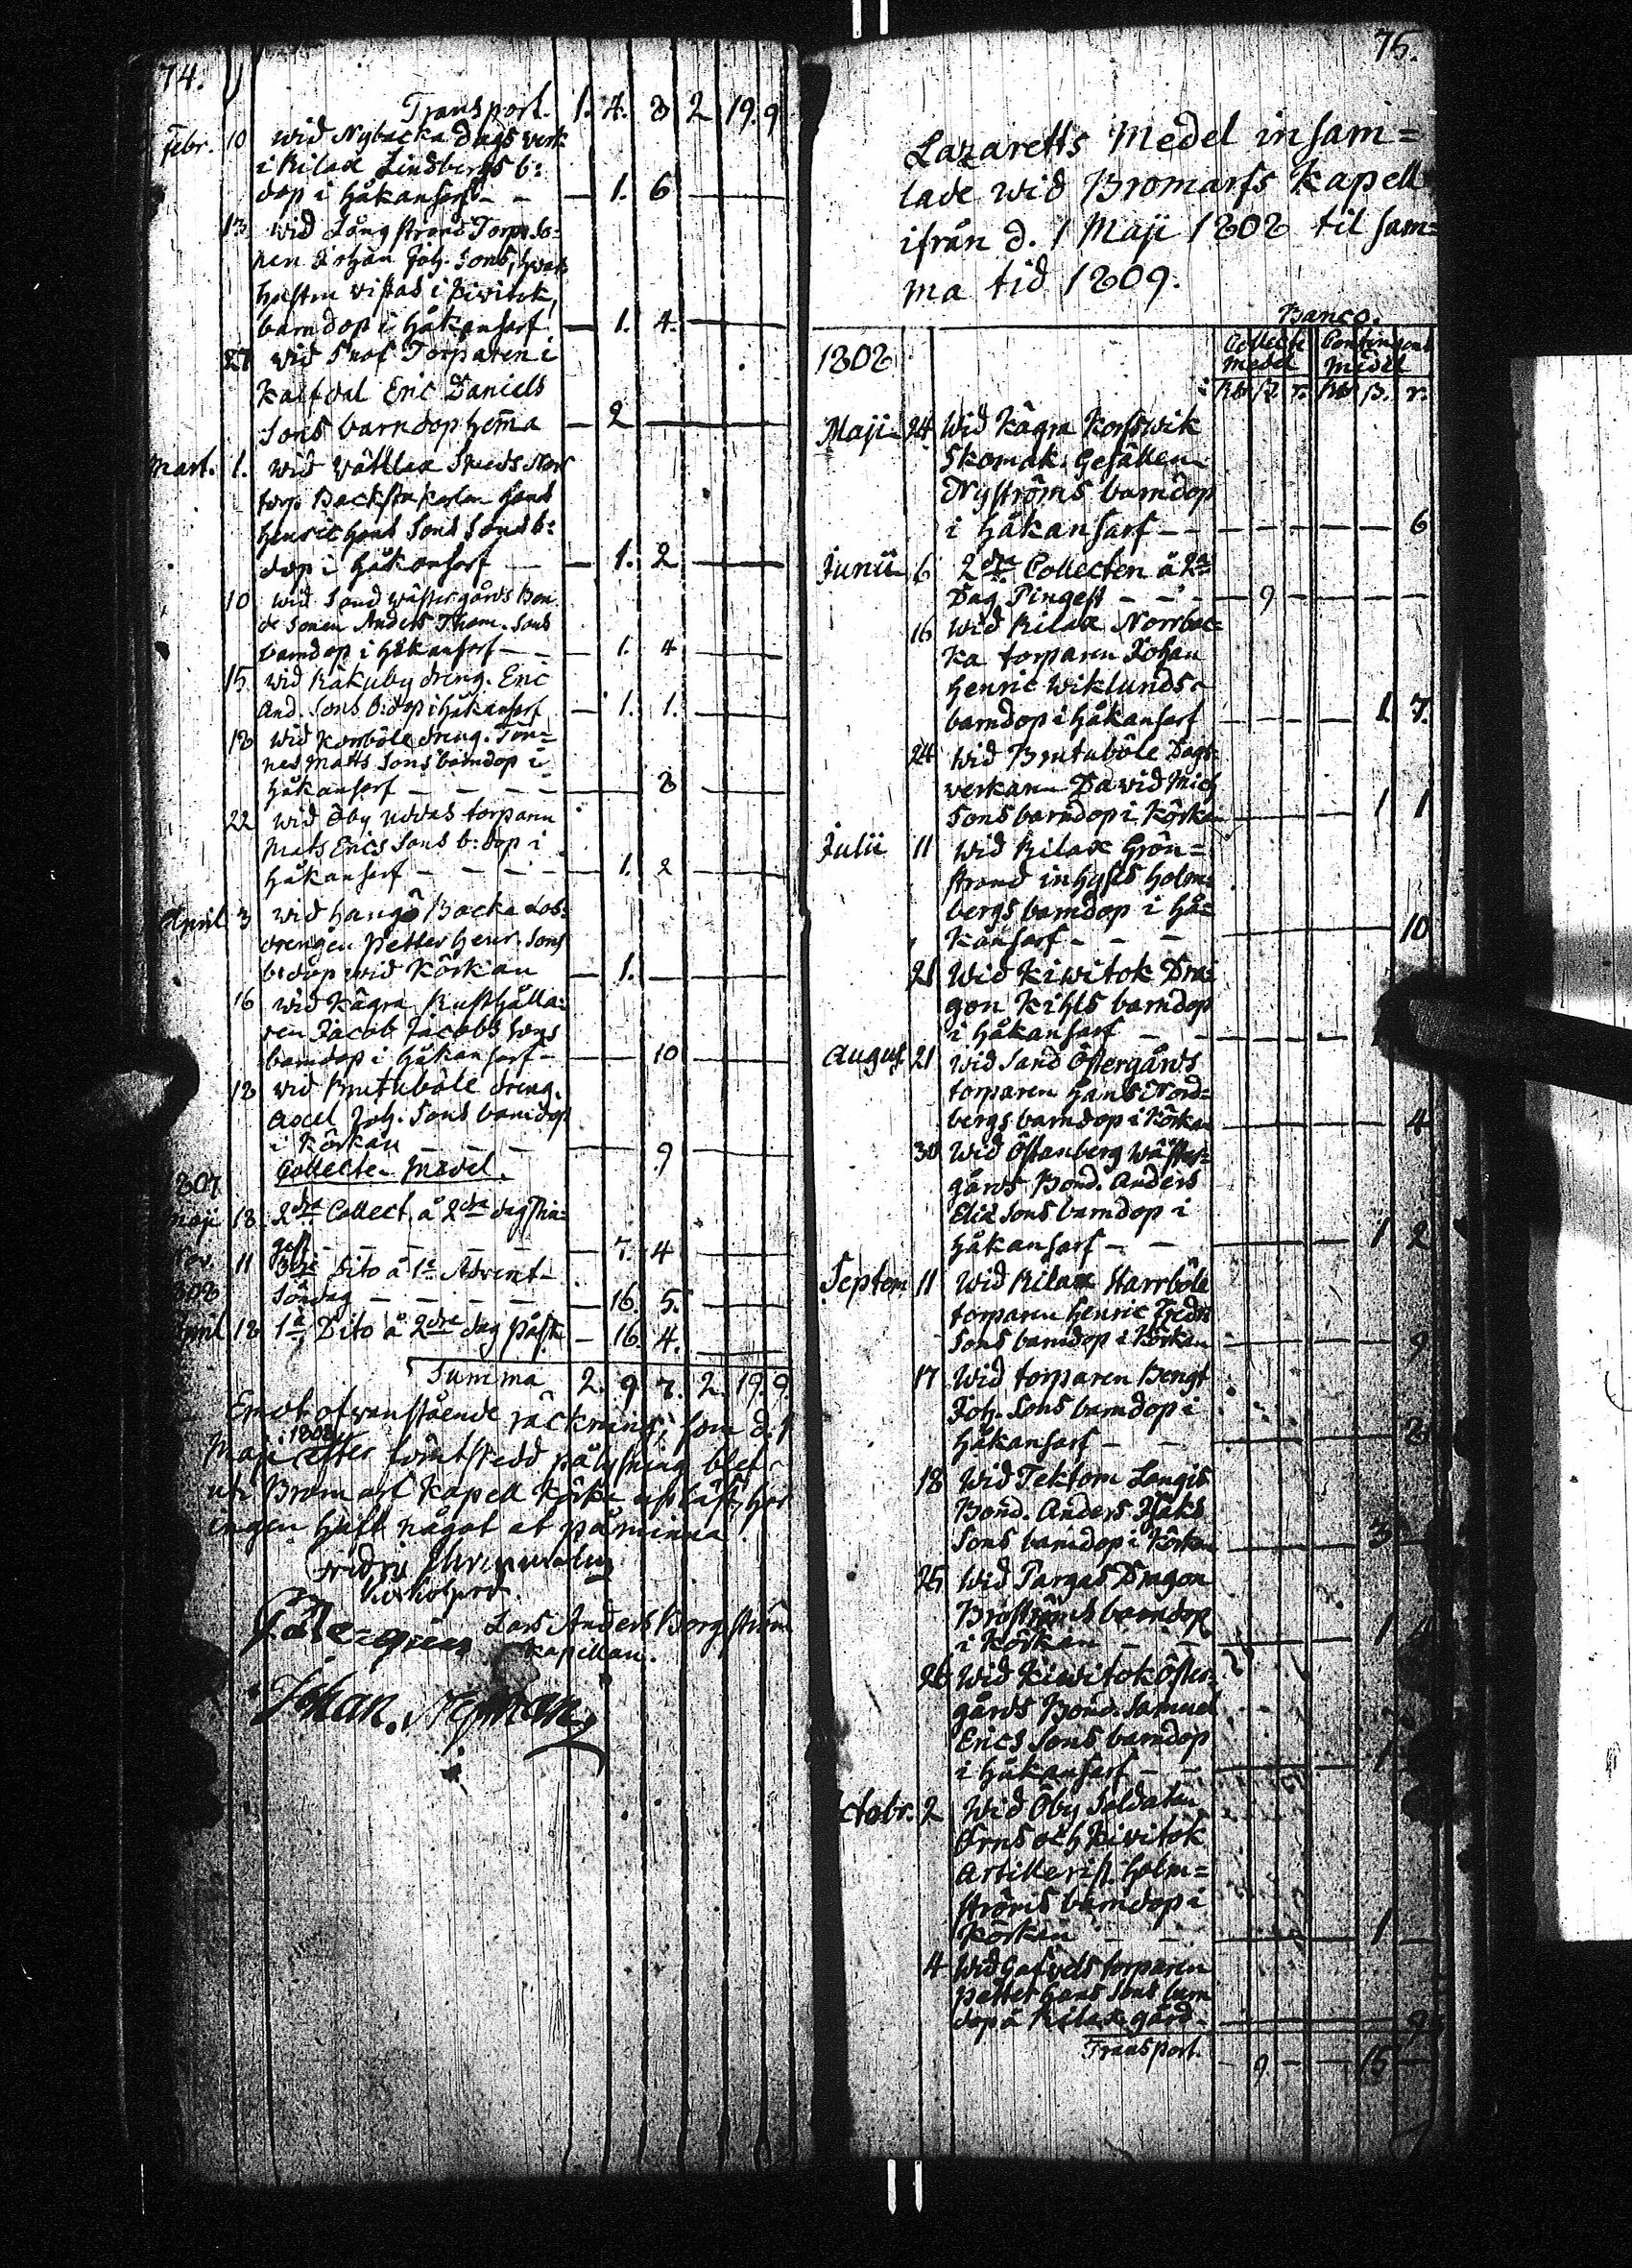 74.
Transport. 1. 4. 8 2 19. 9
Febr. 10 wid Nybacka Dags verk
i Rilax Lindbergs b:
dop i Håkansarf - - — 1. 6 —
13 wid Långstrand Torpa So=
nen Johan Joh. Sons, hwars
hustru vistas i Kivitok,
barndop i Håkansarf — 1. 4. —
27 wid Torparen i
Kalfdal Eric Daniels
Sons barndop hem̄a — 2 —
Mart. 1. wid Vättlax
torp. Backstu karlen Hans
Henric Hans Sons Sons b:
dop i Håkansarf — — 1. 2 —
10 wid Sand Wästergårds Bon
de Sonen Anders Thom. Sons
barndop i Håkansarf — — 1. 4 —
15 wid Råkuby dreng. Eric
And. Sons b:dop i Håkansarf — 1. 1. —
18 wid Korsböle dreng. Tön=
nes Matts Sons barndop i
Håkansarf - - - — 8 —
22 wid Öby Uddas torparen
Mats Erics Sons b: dop i
Håkansarf - - - — 1. 2 —
April 3 wid Hangö Backa Los=
drengen Petter Henr. Sons
b: dop wid Körkan — 1. —
16 wid Kägra Rusthålla=
ren Jacob Jacobs Sons
barndop i Håkansarf - — 10 —
18 wid Brutuböle dreng.
Axel Joh. Sons barndop
i Körkan - - - — 9 —
Collecte Medel.
1807
Maji 18 2dra Collect. å 2dra dag Pin=
gest - - - - — 7. 4 —
Nov. 11 3die Dito å 1a Advent=
1808 Söndag - - - - — 16. 5. —
April 18 1a Dito å 2dra dag Påsk — 16. 4. —
Summa 2. 9 7. 2. 19. 9.
Emot ofvanstående räckning, som d. 1
Maji 1808 efter förut skedd pålysning blef
uti Bromarf Kapell Körka upläst, har
ingen haft något at påminna
Kyrkoherd.
Lars Anders Borgström
Kapellan.
Johan
75.
Lazaretts Medel insam=
lade wid Bromarfs Kapell
ifrån d. 1 Maji 1808 til sam=
ma tid 1809.
Banco.
1808 Collecte Contingent
Medel Medel
Rdr ß. r. Rdr ß. r.
Maji 24 Wid Kägra Korswik
Skomak. Gesällen
Nyströms barndop
i Håkansarf - - — 6
Junii 6 2dra Collecten å 2a
Dag Pingest - - - — 9 —
16 Wid Rilax Norrbac=
ka torparen Johan
Henric Wiklunds
barndop i Håkansarf — 1. 7.
24 Wid Brutuböle Dags=
verkaren Dawid Mich
Sons barndop i Körkan — 1 1
Julii 11 Wid Rilax Grön=
strand inhyses Holm=
bergs barndop i Hå=
kansarf - - - — 10
21 Wid Kiwitok Dra=
gon Kihls barndop
i Håkansarf - - —
August 21 Wid Sand Östergårds
torparen Hans Nord=
bergs barndop i Körkan — 4
30 Wid Östanberg Wäster=
gårds Bond. Anders
Elia Sons barndop i
Håkansarf - - — 1 2
Septem. 11 Wid Rilax Starrböle
torparen Henric Fredr.
Sons barndop i Körkan — 9
17 Wid torparen Bengt
Joh. Sons barndop i
Håkansarf - - — 8
18 Wid Tektom Langis
Bond. Anders Isaks
Sons barndop i Körkan — 3 —
25 Wid Pargas Dragon
Broströms barndop
i Körkan - - — 1
26 Wid Kiwitok Öster=
gårds Bond. Samuel
Erics Sons barndop
i Håkansarf - - — 1
Octobr. 2 Wid Öby Soldaten
Örns och Kivitok
Artillerist. Holm=
ströms barndop i
Körkan - - — 1 —
4 Wid torparen
Petter Hans Sons barn
dop å Rilax gård - — 9
Transport. — 9 — — 15 —